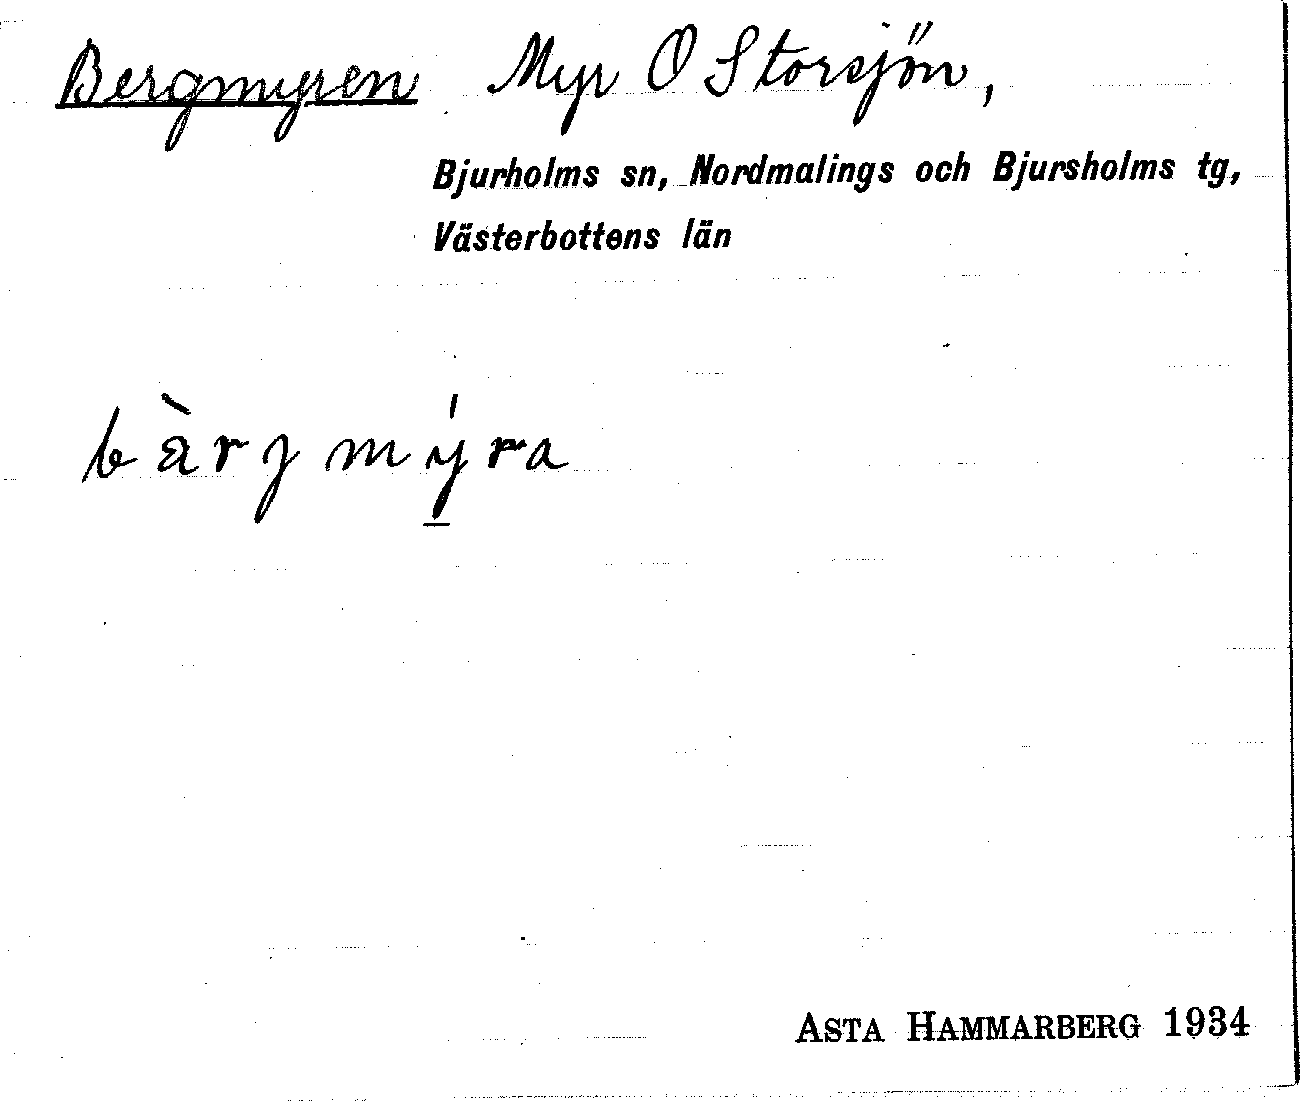 Bergmyren Myr O Storsjön,
Bjurholms sn, Nordmalings och Bjursholms tg,
Västerbottens län
bàrʒmý̠ra
ASTA HAMMARBERG 1934